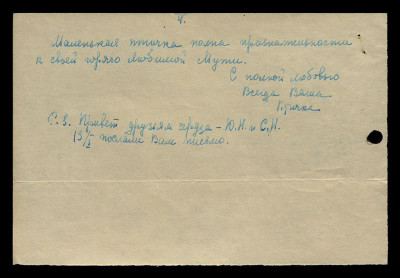 4.
Маленькая птичка полна признательности
к своей горячо любимой Мути.
С полной любовью
Всегда Ваша
Птичка
P.S. Привет друзьям сердца – Ю.Н. и С.Н.
13/I послали Вам письмо.